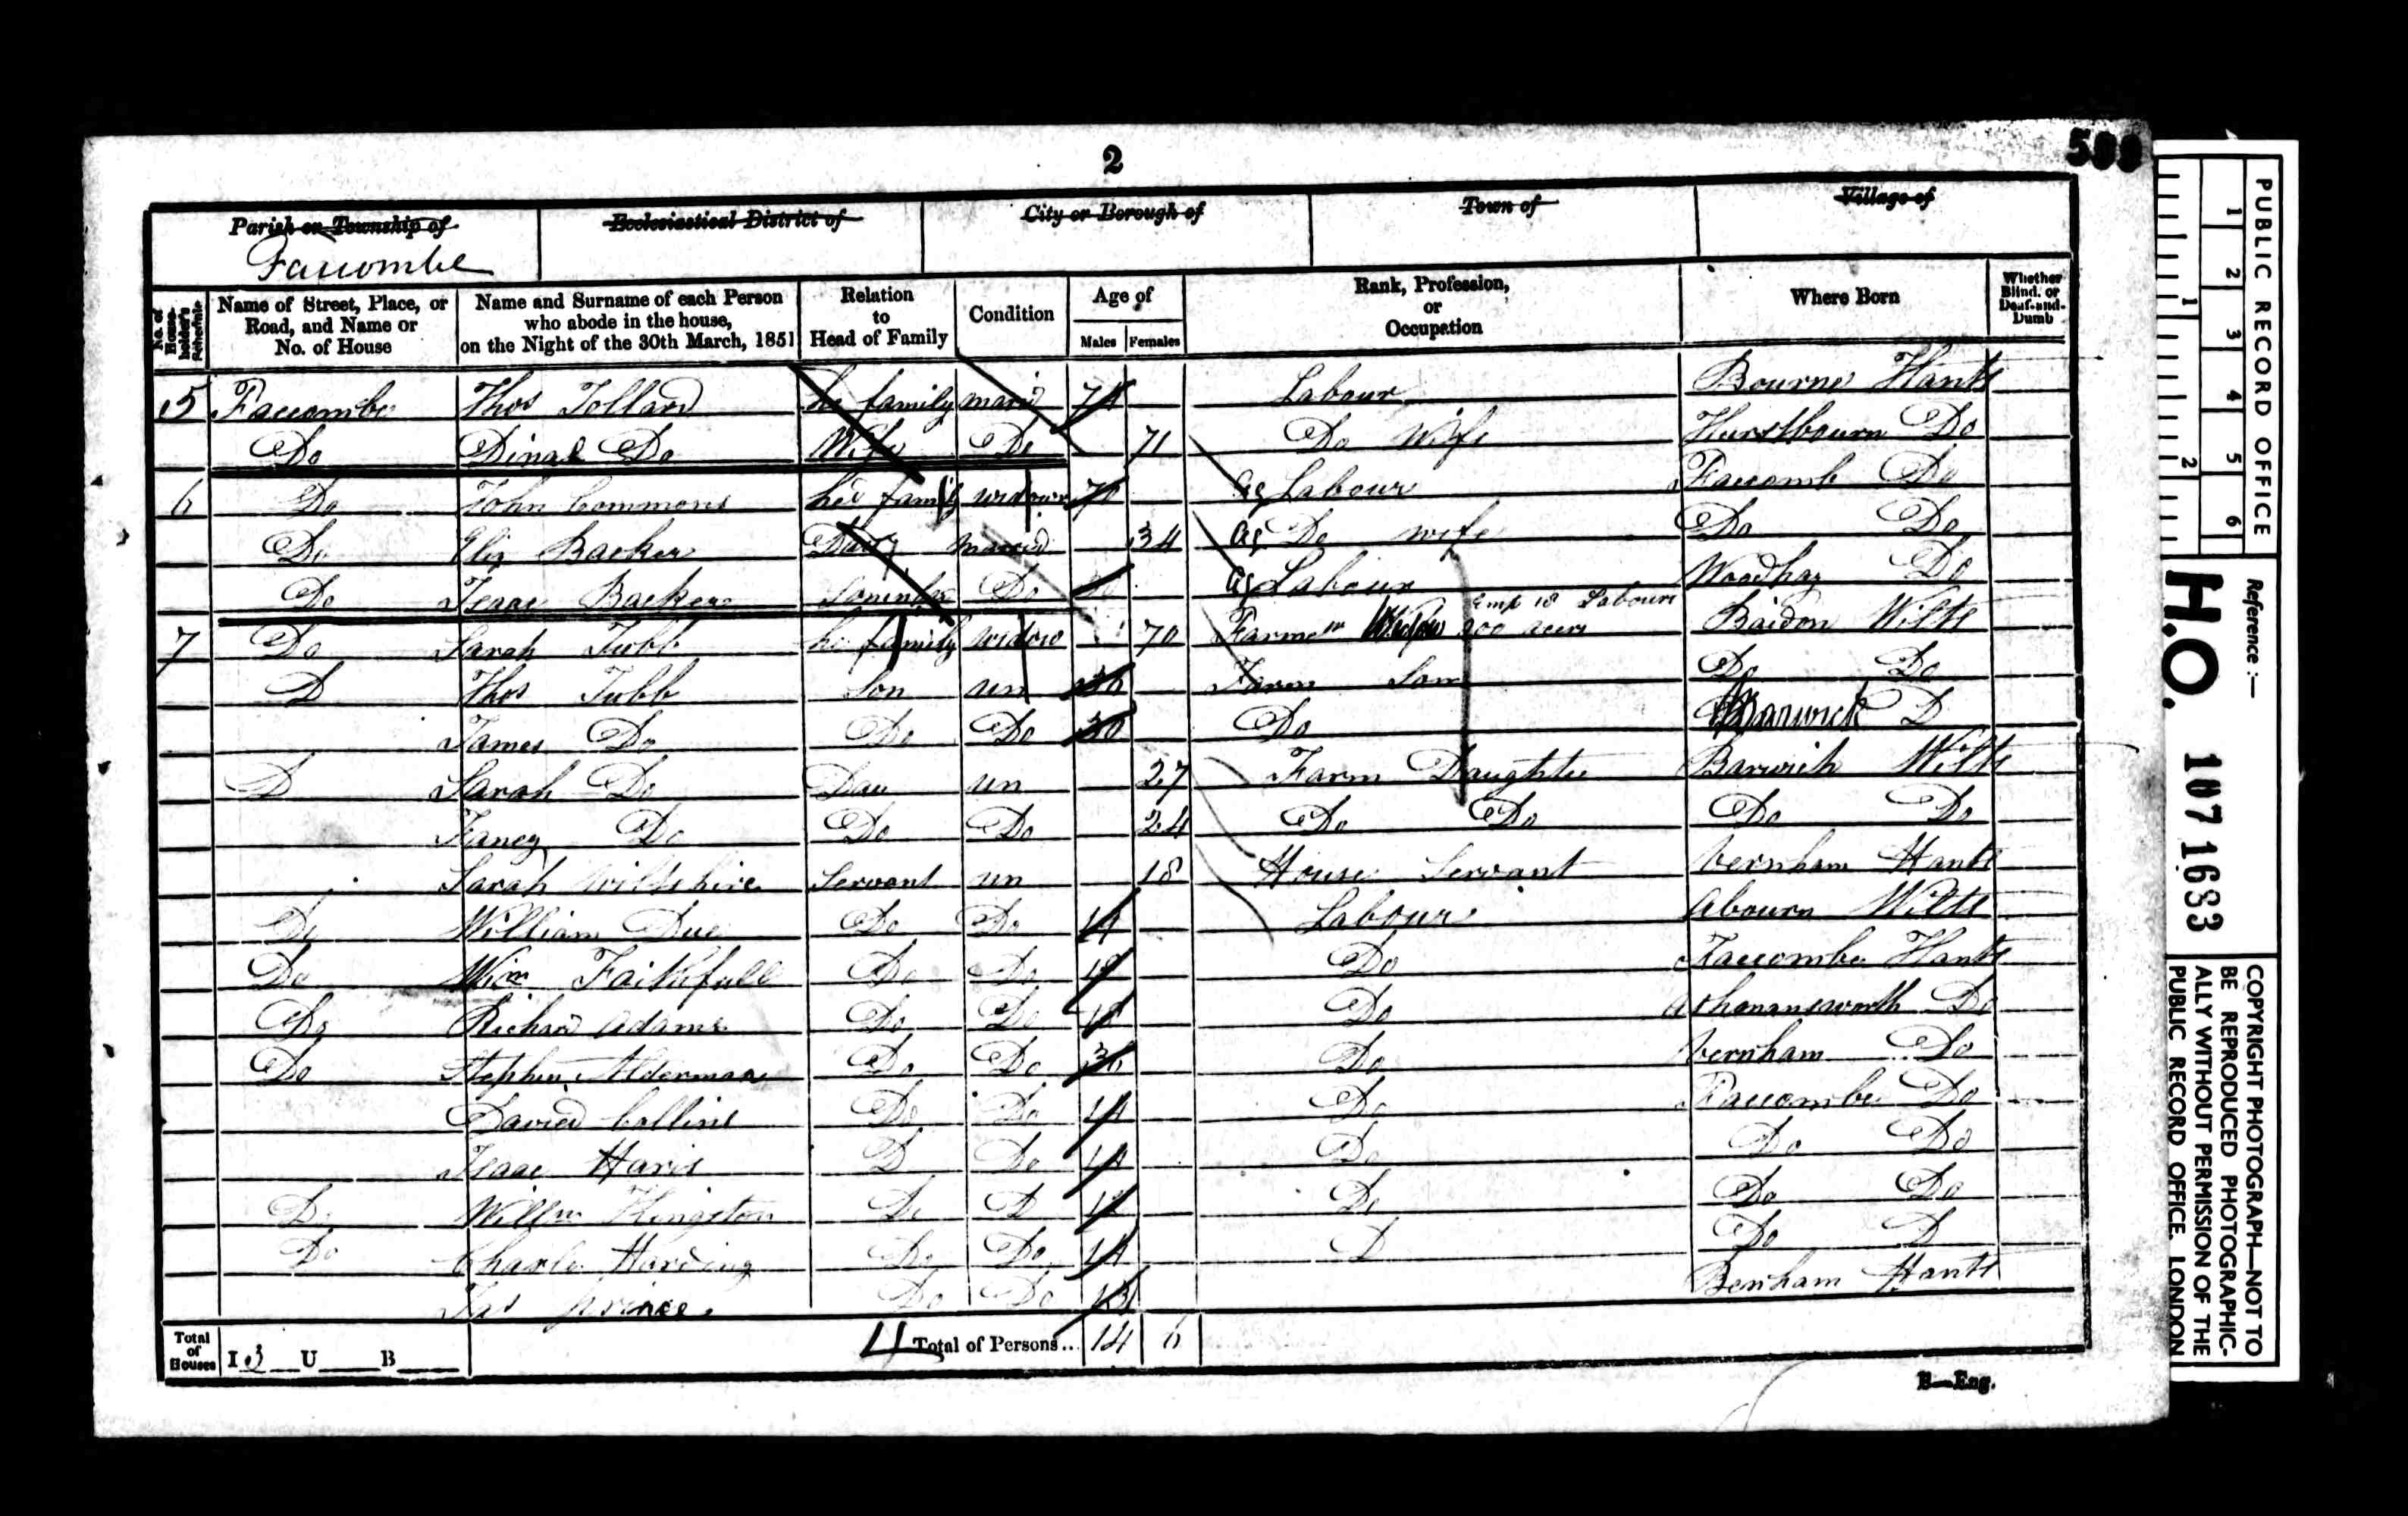 2
599
Parish or Township of
Faccombe
Ecclesiastical District of
City or Borough of
Town of
Village of
No. of Householder's Schedule
Name of Street, Place, or Road, and Name or No. of House
Name and Surname of each Person who abode in the house, on the Night of the 30th March, 1851
Relation to Head of Family
Condition
Age of
Males
Females
Rank, Profession, or Occupation
Where Born
Whether Blind, or Deaf-and-Dumb
5 Faccombe Thos Tollard family mard 74 Labour Bourne Hants
Do Dinah Do Wife Do 71 Do Wife Hurstbourn Do
6 Do John Commons hed family widower 70 ag Labour Faccomb Do
Do Eliz Backer Daug married 34 ag Do wife Do Do
Do Isaac Backer Soninlaw Do ag Labour Woodhay Do
7 Do Sarah Tubb family widow 70 Farmer Widow 900 acers Emp 18 Labours Baidon Wilts
D Thos Tubb Son un 36 Farm Son Do Do
James Do Do Do 30 Do Barwick D
D Sarah Do Dau un 27 Farm Daughter Barwick Wilts
Fancy Do Do Do 24 Do Do Do Do
Sarah Wiltshire Servant un 18 House Servant Vernham Hants
Do William Due Do Do 14 Labour Abourn Wilts
Do Wim Faithfull Do Do 19 Do Faccombe Hants
Do Richard Adams Do Do 18 Do Do
Do Stephen Alderman Do Do 36 Do Vernham Do
David Collins Do Do 14 Do Faccombe Do
Isaac Haris D Do 14 Do Do Do
D Willm Kingston Do D 12 Do Do Do
Do Charles Harding Do Do 14 D Do D
Jas prince Do Do 13 Benham Hants
Total of Houses I 3 U B
4 Total of Persons... 14 6
B—Eng.
PUBLIC RECORD OFFICE
1 2 3 4 5 6
1 2
Reference :—
H.O. 107 1683
COPYRIGHT PHOTOGRAPH—NOT TO
BE REPRODUCED PHOTOGRAPHIC-
ALLY WITHOUT PERMISSION OF THE
PUBLIC RECORD OFFICE, LONDON